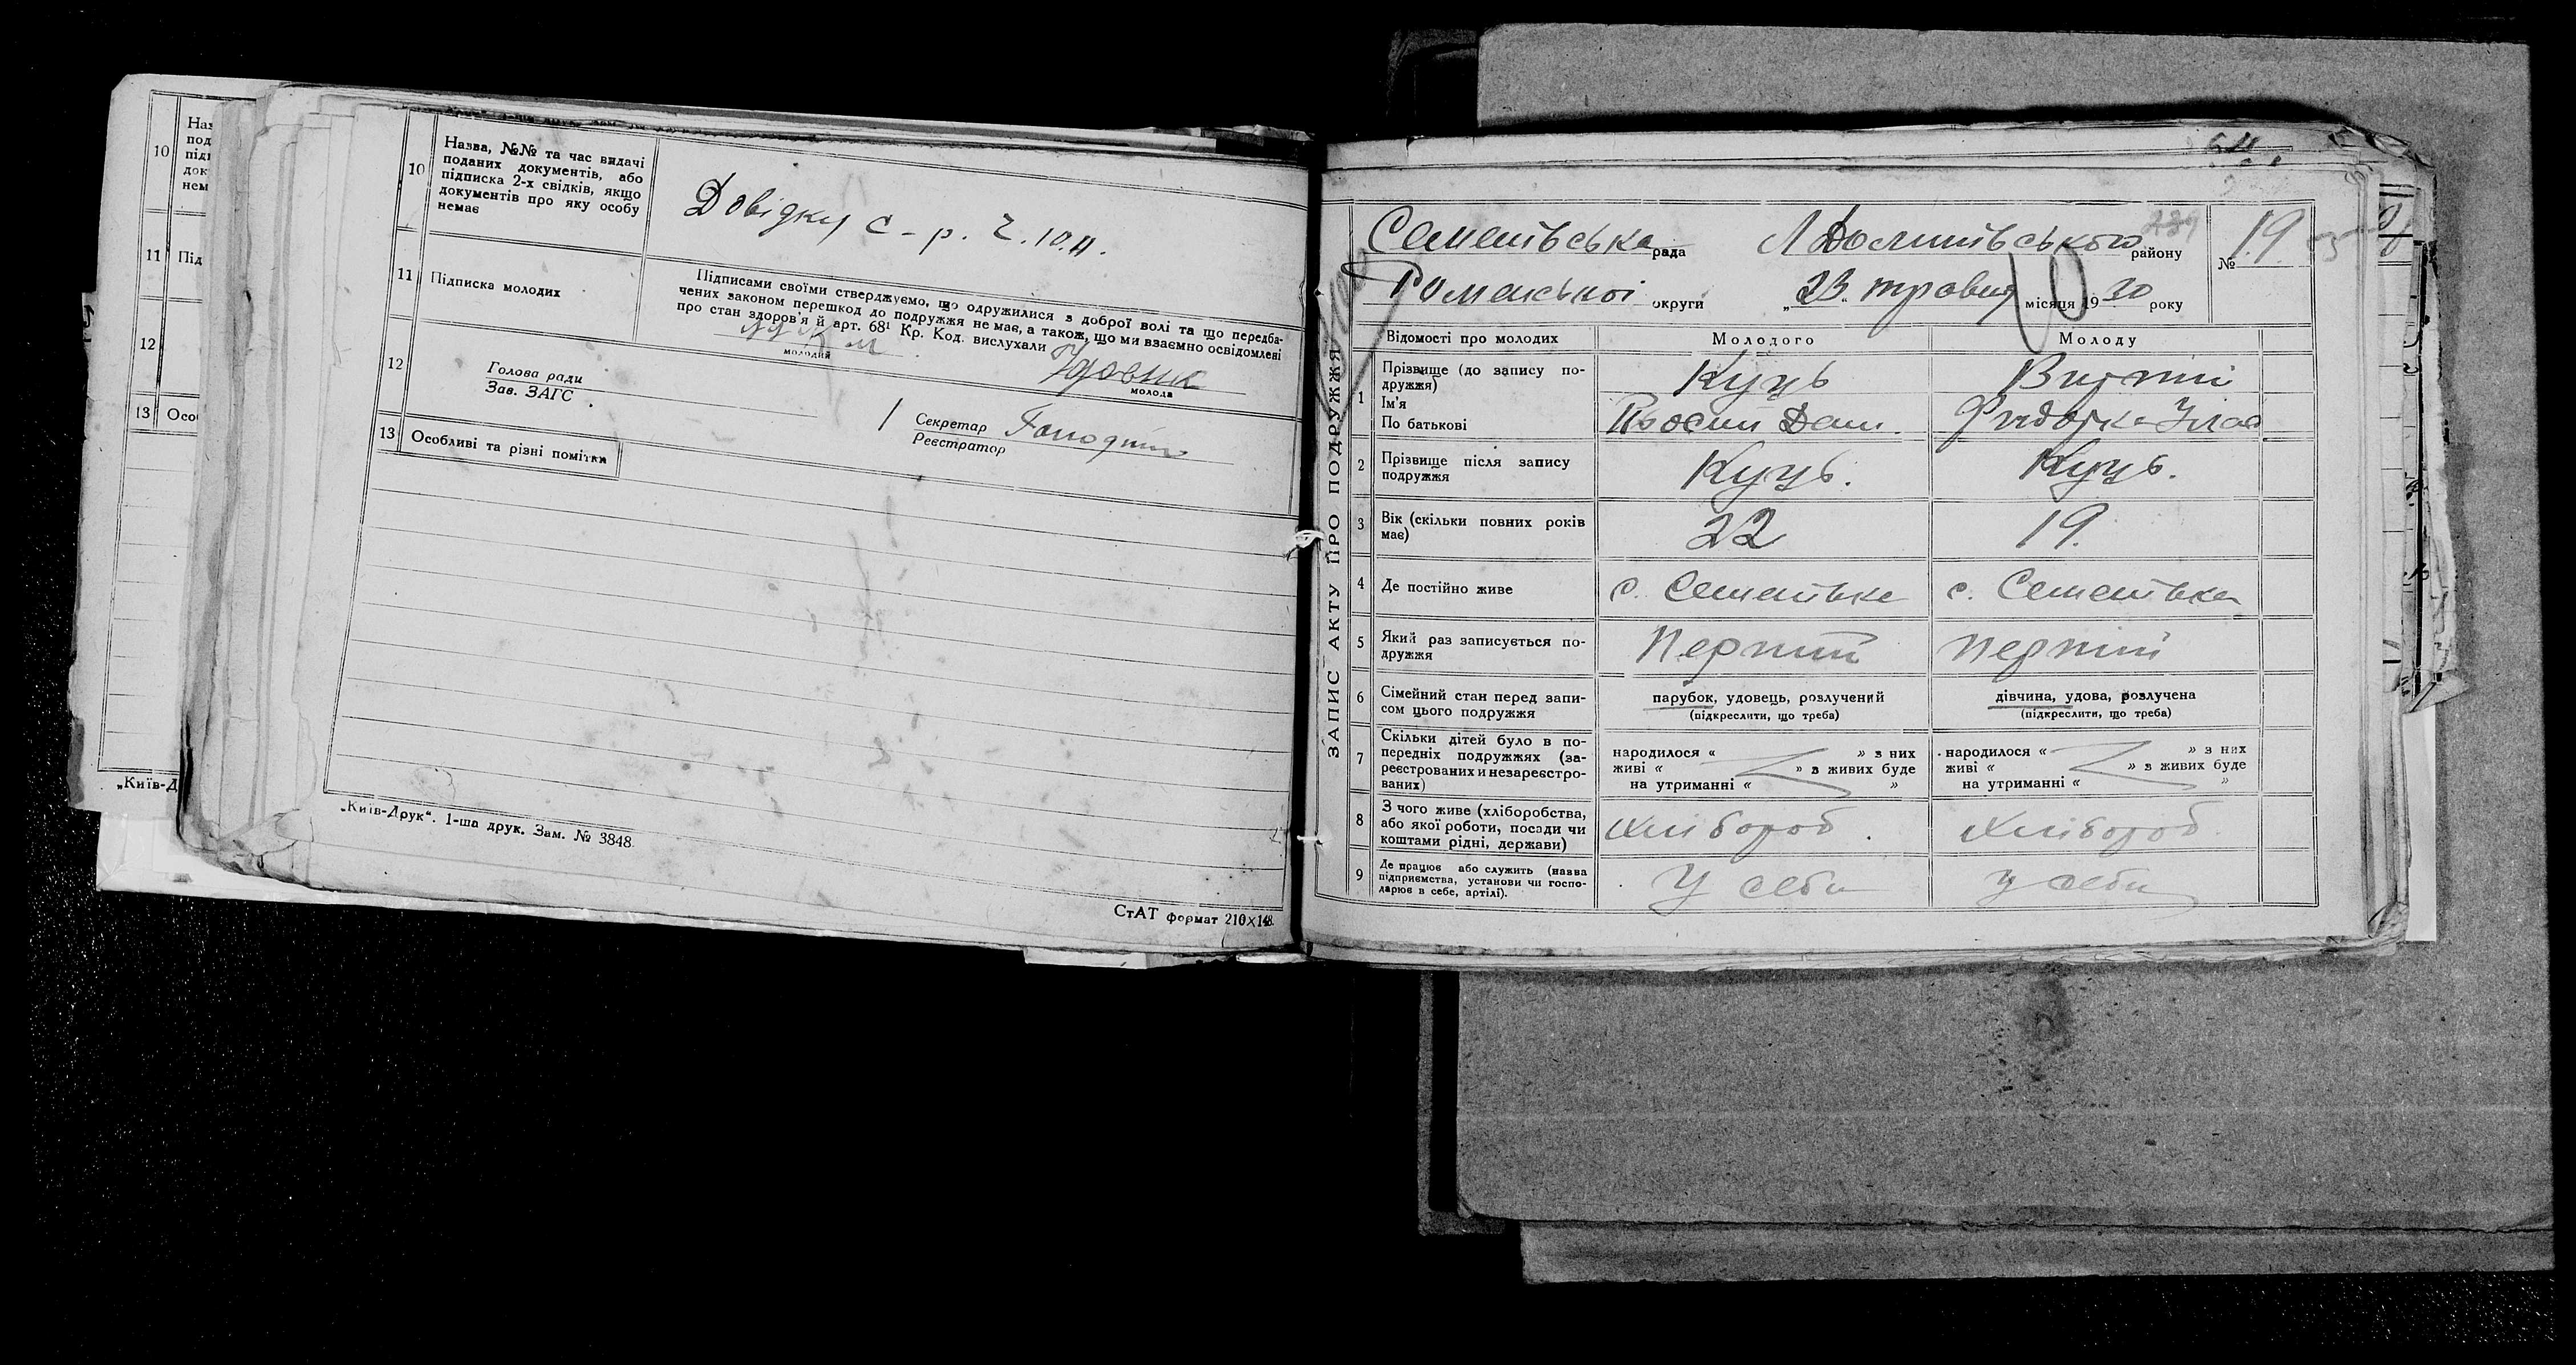 10
Назва, №№ та час видачі
поданих документів, або
підписка 2-х свідків, якщо
документів про яку особу
немає
Довідку с-р.
11
Підписка молодих
Підписами своїми стверджуємо, що одружилися з доброї волі та що передба-
чених законом перешкод до подружжя немає, а також, що ми взаємно освідомлені
про стан здоров'я й арт. 68¹ Кр. Код. вислухали
молодий
молода
12
Голова ради
Зав. ЗАГС
Секретар
Реєстратор
13 Особливі та різні помітки
„Київ-Друк“. 1-ша друк. Зам. № 3848.
СтАТ формат 210×148.
10
11 Під
12
13 Особ
„Київ-Д
ЗАПИС АКТУ ПРО ПОДРУЖЖЯ
Семенівська рада району № 19.
Роменської округи „23“ травня місяця 1930 року
Відомості про молодих Молодого Молоду
1 Прізвище (до запису по-
дружжя) Куць
Ім'я
По батькові
2 Прізвище після запису
подружжя Куць. Куць.
3 Вік (скільки повних років
має) 22 19.
4 Де постійно живе с. Семенівка с. Семенівка
5 Який раз записується по-
дружжя Перший Перший
6 Сімейний стан перед запи-
сом цього подружжя
парубок, удовець, розлучений
(підкреслити, що треба)
дівчина, удова, розлучена
(підкреслити, що треба)
7 Скільки дітей було в по-
передніх подружжях (за-
реєстрованих и незареєстро-
ваних)
народилося « » з них
живі « » з живих буде
на утриманні « »
народилося « » з них
живі « » з живих буде
на утриманні « »
8 З чого живе (хліборобства,
або якої роботи, посади чи
коштами рідні, держави) Хлібороб. Хлібороб
9 Де працює або служить (назва
підприємства, установи чи госпо-
дарює в себе, артілі). У себи у себи